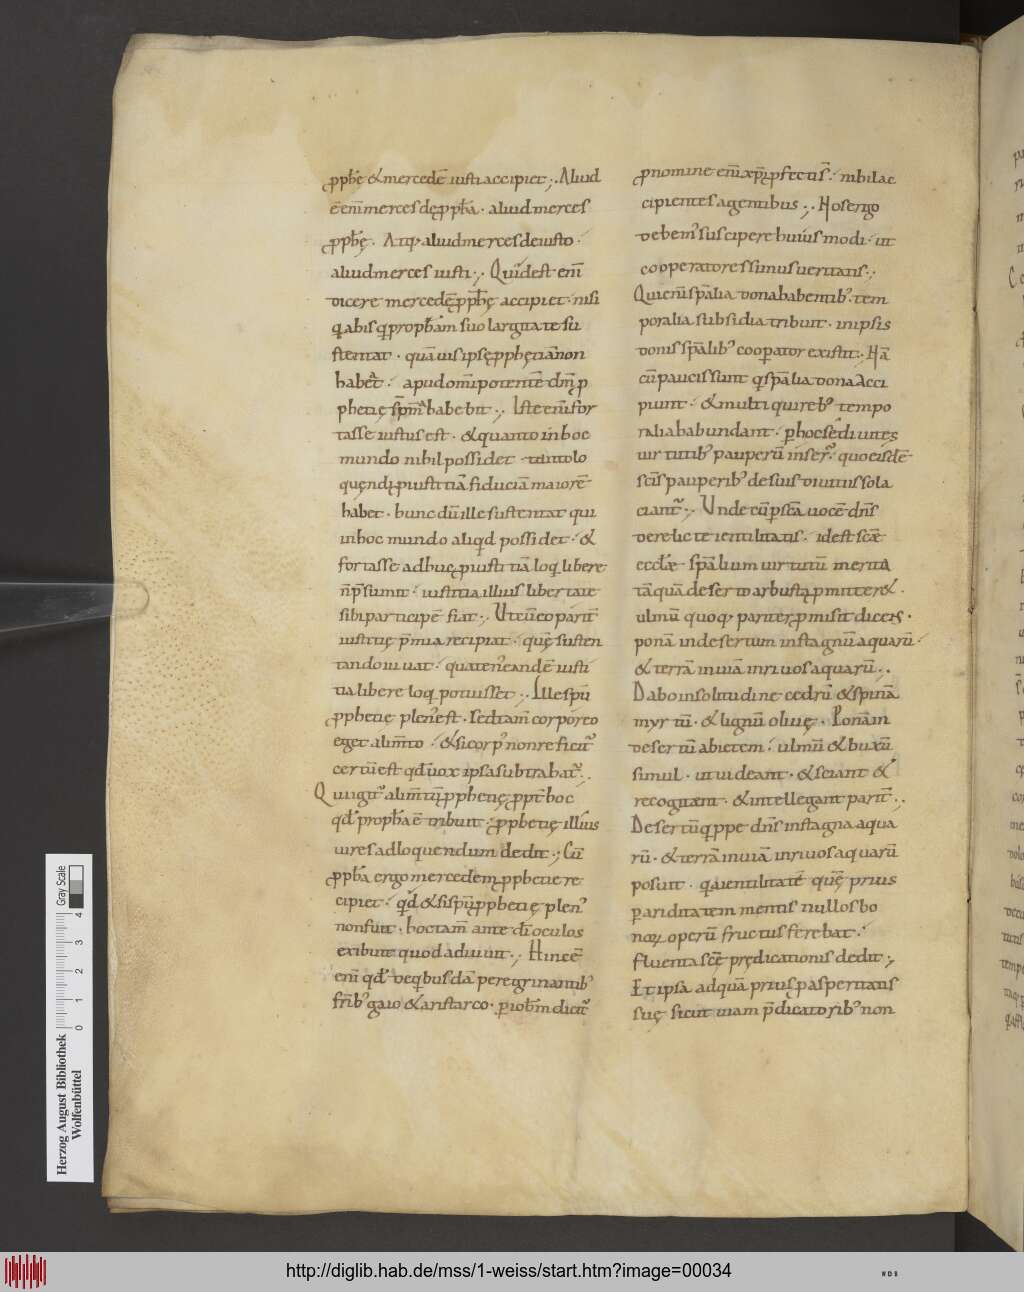 ꝓph̅e &mercedē iusti accipiet ;. Aliud
ē em̅ merces de ꝓph̅a · aliud merces
ꝓph̅ę · Atq; aliud merces de iusto ·
aliud merces iusti ;. Quid est em̅
dicere mercedē ꝓph̅ę accipiet · nisi
habet · apud om̅ipotentē dm̅
phetię sp̅m habebit ;. Iste em̅ for
tasse iustus est · & quanto in hoc
mundo nihil possidet tanto lo
quendi ꝓ iustitiā fiduciā maiorē
habet · hunc dū ille sustentat qui
in hoc mundo aliqd possidet · &
fortasse adhuc ꝓ iustitiā loq libere
iustitia illius libertate
sibi participē fiat ;. Ut cū eo parit̅
iustitię p̅mia recipiat · quē susten
tando iuuat · quaten' eandē iusti
tiā libere loq potuisset ;. Ille sp̅u
ꝓphetię plen' est · sed tam̅ corporeo
eget alim̅to · & si corp' non reficit̅
certū est qd uox ipsa subtrahat̅ ;.
Qui igit̅ alim̅tū ꝓphetię ꝓpt̅ hoc
qd ꝓph̅a ē tribuit · ꝓphetię illius
uires ad loquendum dedit ;. Cū
ꝓph̅a ergo mercedem ꝓphetię re
cipiet · qd & si sp̅u ꝓphetię plen'
non fuit · hoc tam̅ ante dī oculos
exibuit quod adiuuit ;. Hinc ē
em̅ qd de qbusdā peregrinantib'
fr̅ib' gaio & aristarco · p ioh̅m dicit̅
ꝓ nomine em̅ xp̅i ꝓfecti s̅ · nihil ac
cipientes a gentibus ;. Nos ergo
debem' suscipere huius modi · ut
cooperatores simus ueritatis ;.
Qui em̅ sp̅alia dona habentib' tem
poralia subsidia tribuit · in ipsis
donis sp̅alib' cooperator existit · Nā
cū pauci s̅unt q sp̅alia dona acci
piunt · & multi qui reb' tempo
ralib; abundant · p hoc se diuites
uirtutib' pauperū inser̅ · quo eisdē
sc̅is pauperib' de suis diuitiis sola
ciant̅ ;. Unde cū p sc̅am uocē dn̅s
derelictę gentilitatis · id est sc̅æ
eccl̅æ sp̅alium uirtutū merita
tāquā deserto arbusta ꝓmitteret ·
ulmū quoq; pariter ꝓmisit dicens ·
ponā in desertum in stagnū aquarū ·
& terrā inuiā in riuos aquarū ;.
Dabo in solitudine cedrū & spinā
myrtū · & lignū oliuę · Ponā in
desertū abietem · ulmū & buxū
simul · ut uideant · & sciant &
recogitent · & intellegant parit̅ ;.
Desertū qppe dn̅s in stagna aqua
rū · & terrā inuiā in riuos aquarū
posuit · qa gentilitatē quę prius
p ariditatem mentis nullos bo
noꝝ operū fructus ferebat ·
fluenta sc̅ę prędicationis dedit ;.
Et ipsa ad quā prius p asperitatis
suę sicut uiam p̅dicatorib' non
Herzog August Bibliothek
Wolfenbüttel
0 1 2 3 4 Gray Scale
http://diglib.hab.de/mss/1-weiss/start.htm?image=00034